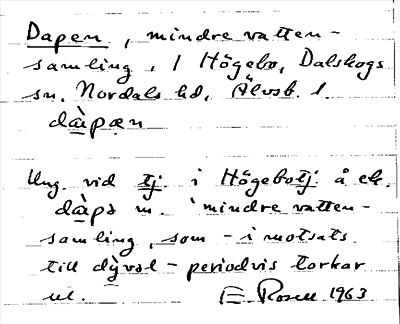 Dapen, mindre vatten-
samling, i Högebo, Dalskogs
sn, Nordals hd, Älvsb. l.
dàpæn
Ung. vid tj i Högebotj. å ek.
dàpə m. 'mindre vatten-
samling, som - i motsats
till dỳvəl - periodvis torkar
ut.
E Rosell 1963